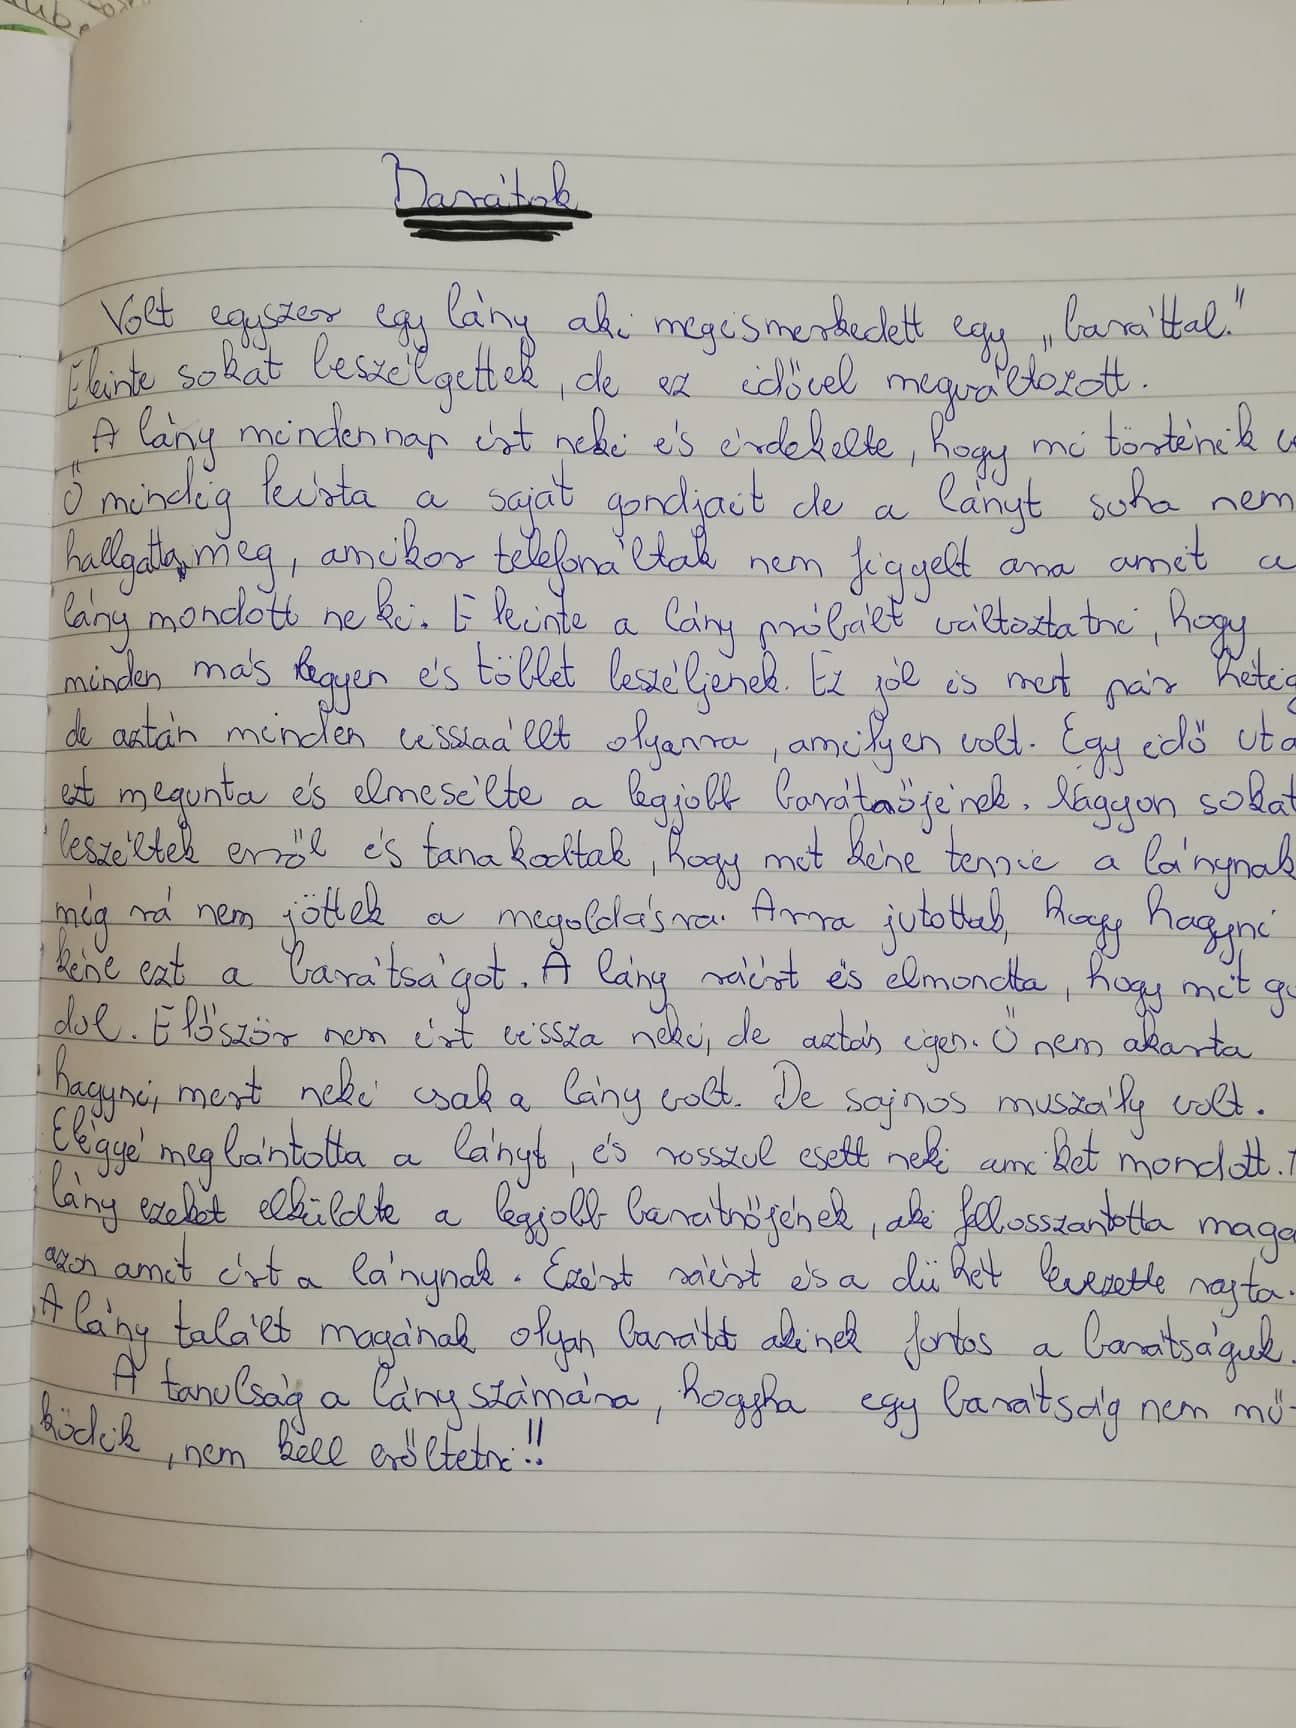 Barátok
Volt egyszer egy lány aki megismerkedett egy „baráttal."
Eleinte sokat beszélgettek, de ez idővel megváltozott.
A lány mindennap írt neki és érdekelte, hogy mi történik v
Ő mindig leírta a saját gondjait de a lányt soha nem
hallgatta meg, amikor telefonáltak nem figyelt arra amit a
lány mondott neki. Eleinte a lány próbált változtatni, hogy
minden más legyen és többet beszéljenek. Ez jól is ment pár hétig
de aztán minden visszaállt olyanra, amilyen volt. Egy idő utá
ezt megunta és elmesélte a legjobb barátnőjének. Nagyon sokat
beszéltek erről és tanakodtak, hogy mit kéne tennie a lánynak
míg rá nem jöttek a megoldásra. Arra jutottak, hogy hagyni
kéne ezt a barátságot. A lány ráírt és elmondta, hogy mit go
dol. Először nem írt vissza neki, de aztán igen. Ő nem akarta
hagyni, mert neki csak a lány volt. De sajnos muszály volt.
Eléggé megbántotta a lányt, és rosszul esett neki amiket mondott.
lány ezeket elküldte a legjobb barátnőjének, aki felbosszantotta maga
azon amit írt a lánynak. Ezért ráírt és a dühét levezette rajta.
A lány talált magának olyan barátot akinek fontos a barátságuk.
A tanulság a lány számára, hoggha egy barátság nem mű-
ködik, nem kell erőltetni!!